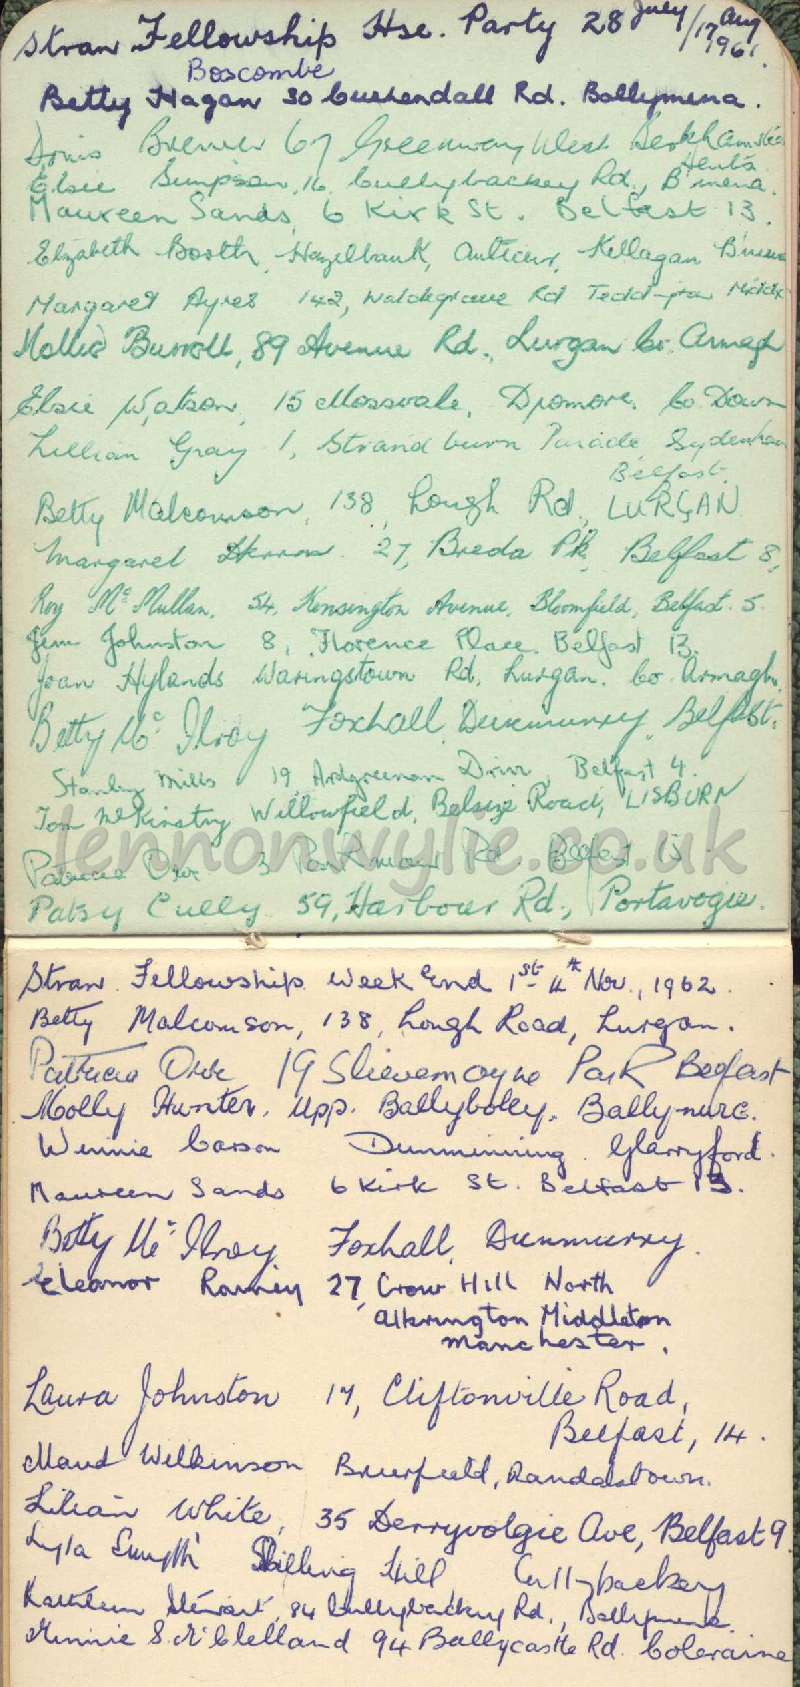 Stran Fellowship Hse. Party 28 July/17 Aug 1961.
Boscombe
Betty Hagan 30 Cushendall Rd. Ballymena.
Doris Brewer 67 Greenway West Berkhamsted
Herts
Elsie Simpson, 16 Cullybackey Rd., B'mena.
Maureen Sands, 6 Kirk St. Belfast 13.
Elizabeth Booth, Hazelbank, Killagan B'mena
Margaret Ayres 142, Waldegrave Rd Teddington Middx
Mollie Burrell, 89 Avenue Rd., Lurgan Co. Armagh
Elsie Watson, 15 Mossvale, Dromore, Co Down
Lillian Gray 1, Strandburn Parade Sydenham
Belfast.
Betty Malcomson, 138, Lough Rd, LURGAN
Margaret Herron 27, Breda Pk, Belfast 8,
Roy McMullan, 54, Kensington Avenue, Bloomfield, Belfast. 5.
Jim Johnston 8, Florence Place. Belfast 13.
Joan Hylands Waringstown Rd, Lurgan. Co. Armagh.
Betty McIlroy Foxhall, Dunmurry, Belfast.
Stanley Mills 19, Ardgreenan Drive, Belfast 4.
Tom McKinstry Willowfield, Belsize Road, LISBURN
lennonwylie.co.uk
Patricia Orr 3 Rd Belfast 15
Patsy Cully 59, Harbour Rd., Portavogie.
Stran Fellowship Week End 1st-4th Nov., 1962.
Betty Malcomson, 138, Lough Road, Lurgan.
Patricia Orr 19 Slievemoyne Park Belfast
Molly Hunter, Upp. Ballyboley, Ballynure.
Winnie Carson Dunminning Glarryford.
Maureen Sands 6 Kirk St. Belfast 13.
Betty McIlroy Foxhall, Dunmurry.
Eleanor 27, Crow Hill North
Alkrington Middleton
Manchester.
Laura Johnston 17, Cliftonville Road,
Belfast, 14.
Maud Wilkinson Brierfield, Randalstown.
Lilian White, 35 Derryvolgie Ave, Belfast 9.
Lyla Smyth Shilling Hill Cullybackey
Kathleen Stewart, 84 Cullybackey Rd., Ballymena.
Minnie S. McClelland 94 Ballycastle Rd. Coleraine